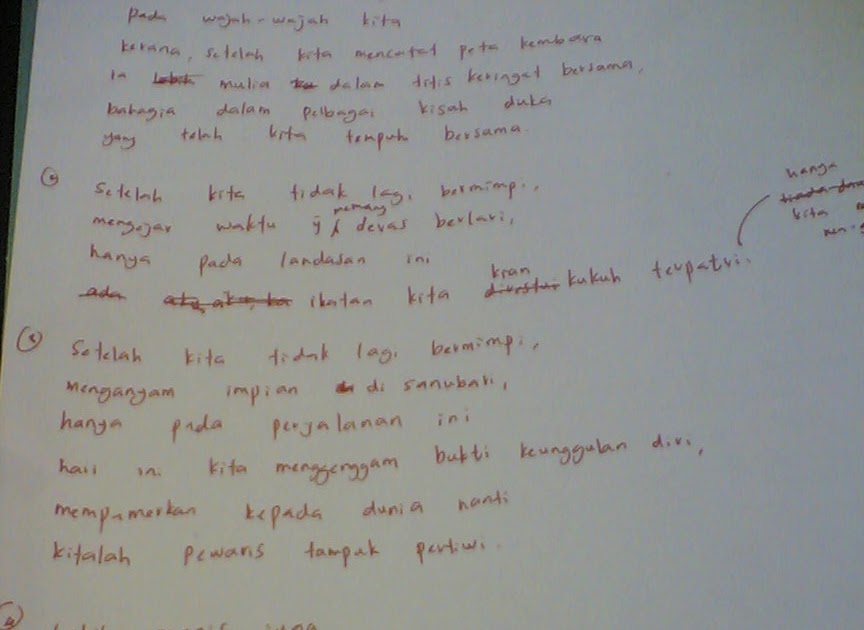 pada wajah-wajah kita
kerana, setelah kita mencatat peta kembara
ia lebih mulia dalam titis keringat bersama,
bahagia dalam pelbagai kisah duka
yang telah kita tempuh bersama.
setelah kita tidak lagi bermimpi,
mengejar waktu ÿ memang deras berlari,
hanya pada landasan ini
ada aku, aku, ikatan kita kian direstui kukuh terpatri.
hanya
kita
(3) Setelah kita tidak lagi bermimpi,
menganyam impian di sanubari,
hanya pada perjalanan ini
hari ini kita menggenggam bukti keunggulan diri,
mempamerkan kepada dunia nanti
kitalah pewaris tampuk pertiwi.